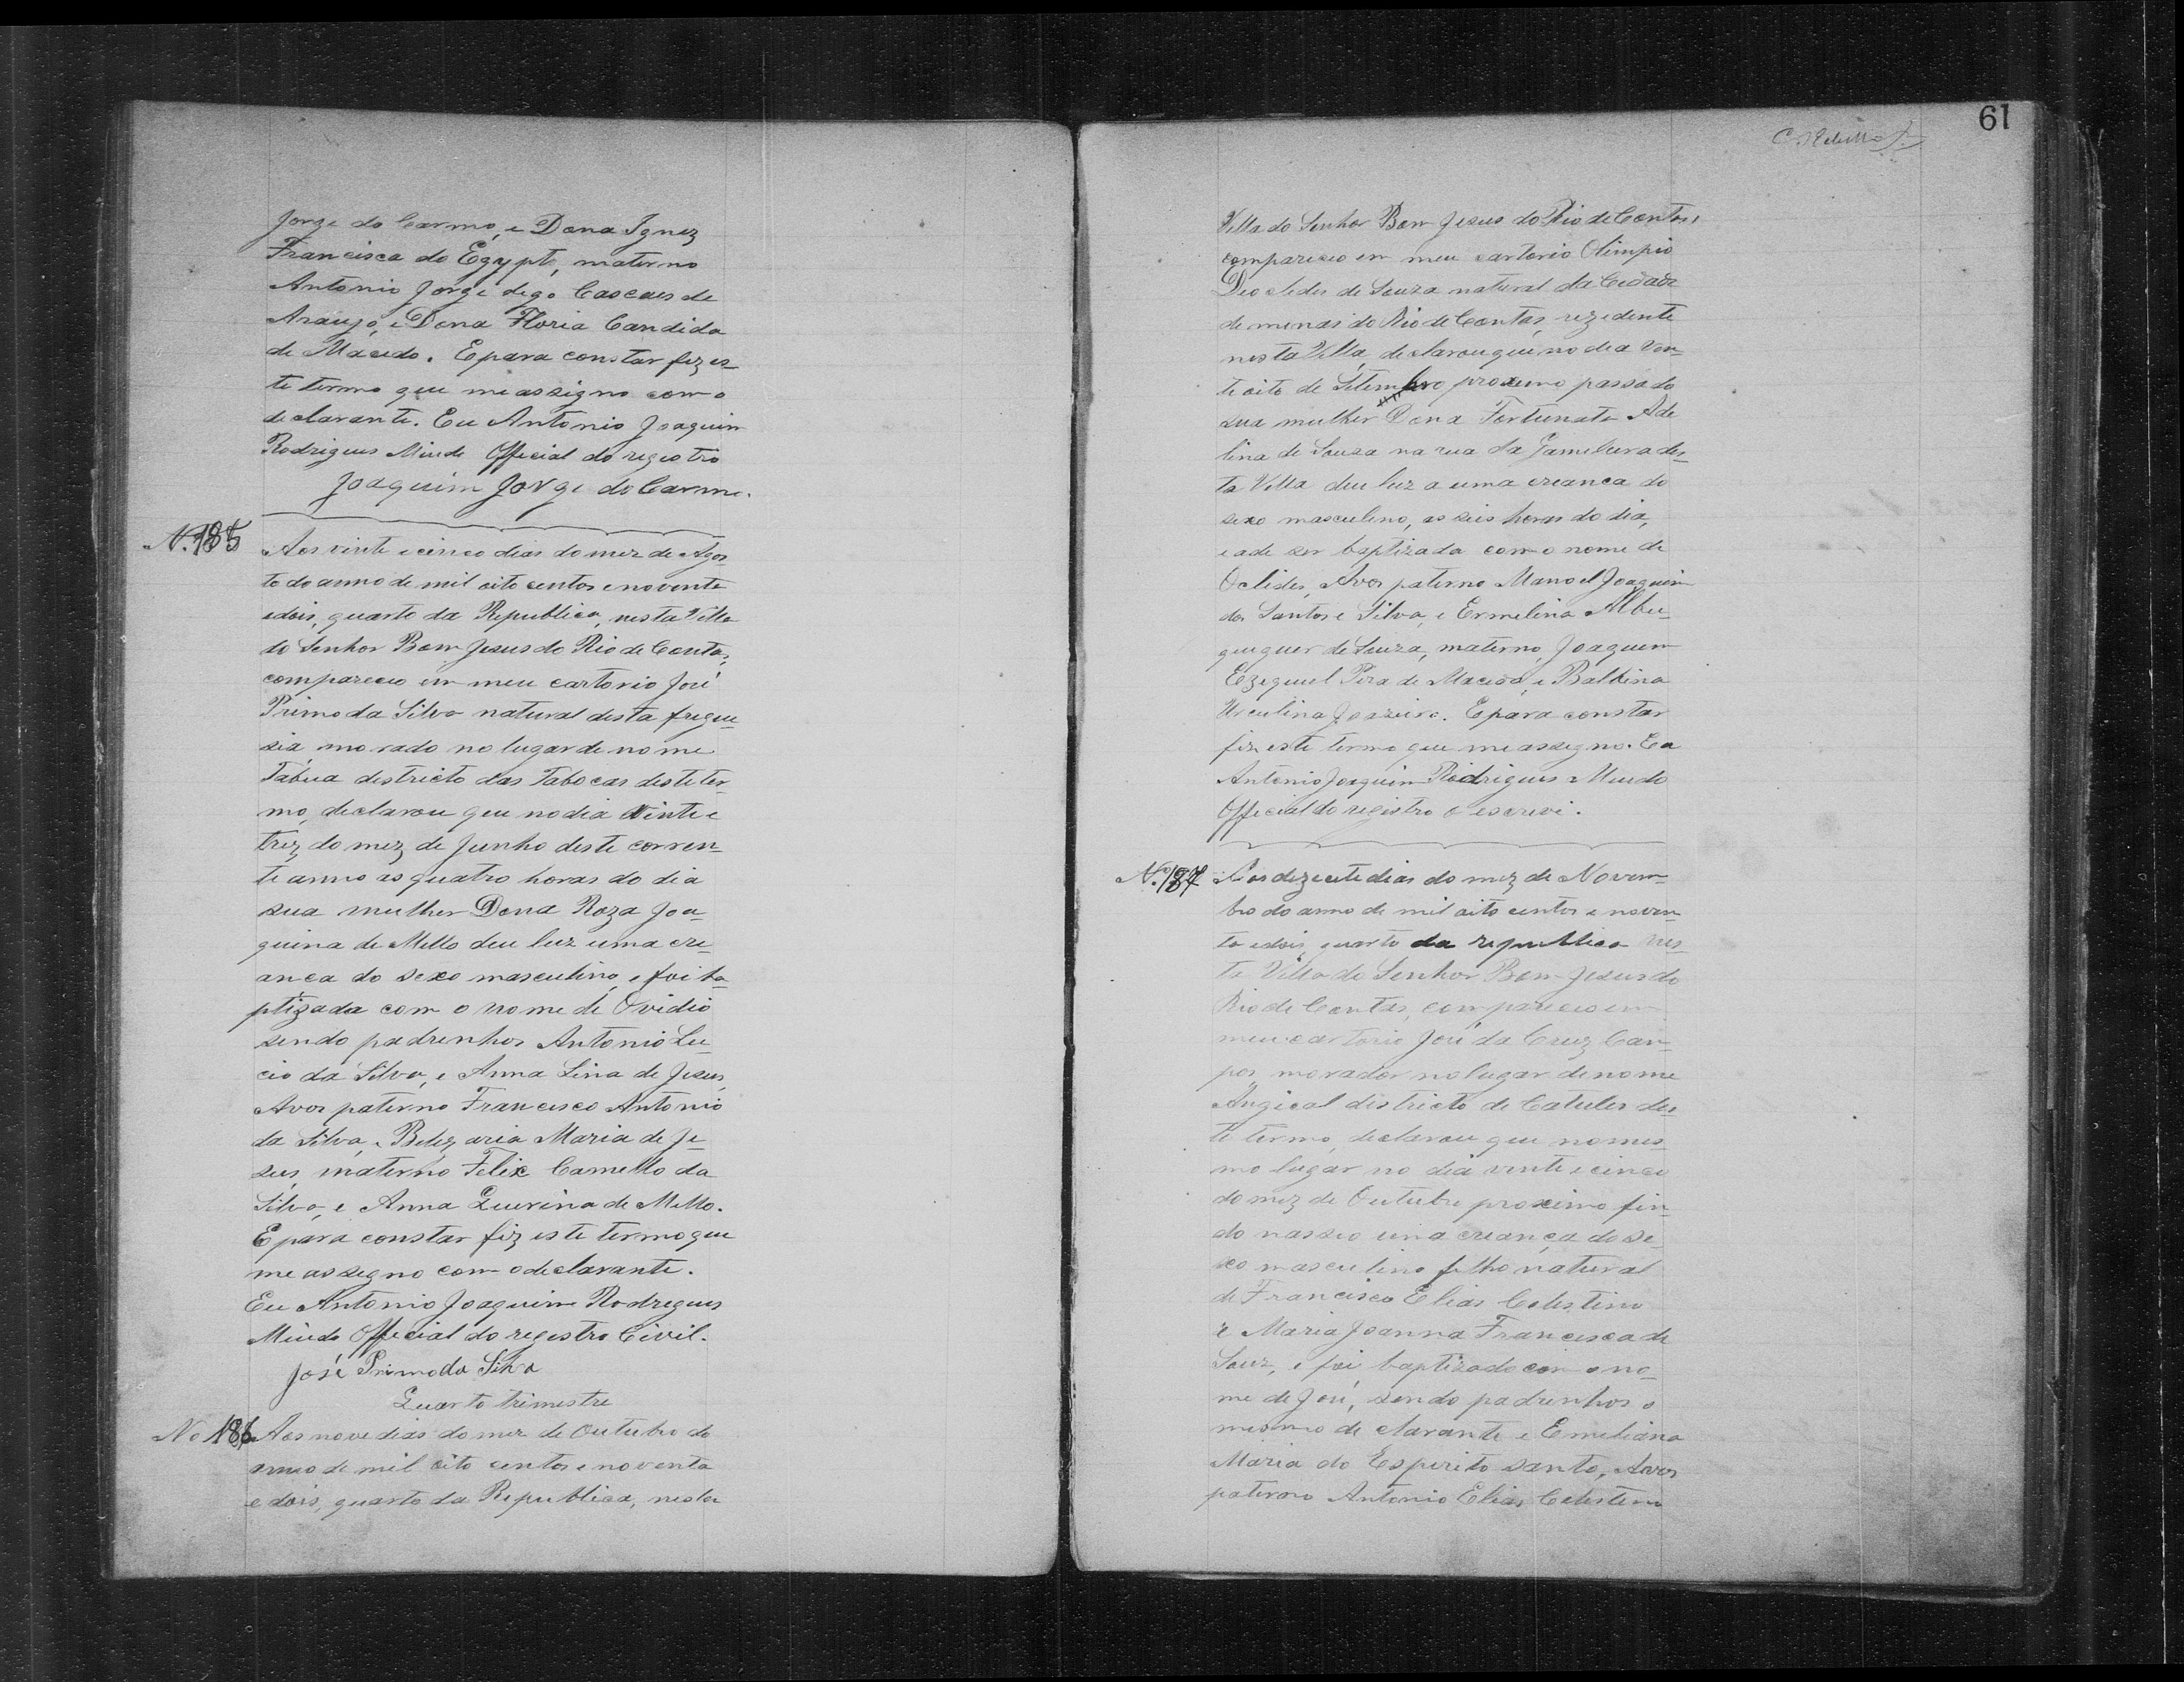 Jorge do Carmo, e Dona Ignez
Francisca do Egypto, materno
Antonio Jorge digo Cascaes de
Araujo, e Dona Floria Candida
de Macedo. E para constar fiz es-
te termo que me assigno com o
declarante. Eu Antonio Joaquim
Rodrigues Miudo Official do registro
Joaquim Jorge do Carmo.
N. 185
Aos vinte e cinco dias do mez de Agos
to do anno de mil oito centos e noventa
e dois, quarto da Republica, nesta Villa
do Senhor Bom Jesus do Rio de Contas,
compareceo em meu cartorio José
Primo da Silva natural desta fregue
sia, morado no lugar de nome
Tabua districto das Tabocas deste ter-
mo, declarou que no dia vinte e
trez do mez de Junho deste corren-
te anno as quatro horas do dia
sua mulher Dona Roza Joa-
quina de Mello deu luz uma cre
anca do sexo masculino, e foi ba-
ptizada com o nome de Ovidio
sendo padrinhos Antonio Lu-
cio da Silva, e Anna Lina de Jesus,
Avos paterno Francisco Antonio
da Silva, e Belizaria Maria de Je-
sus, materno Felix Camello da
Silva, e Anna Quirina de Mello.
E para constar fiz este termo que
me assegno com o declarante.
Eu Antonio Joaquim Rodregues
Miudo Official do registro Civil.
José Primo da Silva
Quarto trimestre
No 186
Aos nove dias do mez de Outubro do
anno de mil oito centos e noventa
e dois, quarto da Republica, nesta
61
Villa do Senhor Bom Jesus do Rio de Contas,
compareceo em meu cartorio Olimpio
Deocledes de Souza natural da Cidade
de minas do Rio de Contas, rezedente
nesta Villa, declarou que no dia ven-
te oito de Setembro proximo passado
sua mulher Dona Fortunata Ade
lina de Souza na rua da Gameleira des-
ta Villa deu luz a uma creanca do
sexo masculino, as seis horas do dia,
e ade ser baptizada com o nome de
Oclides, Avos paterno Manoel Joaquim
dos Santos e Silva, e Ermelina Albu-
querquer de Souza, materno, Joaquim
Ezequiel Pera de Macedo, e Balbina
Urculina Joazeiro. E para constar
fiz este termo que me assegno. Eu
Antonio Joaquim Rodrigues Miudo
Official do registro o escrevi.
N. 187
Aos dezecete dias do mez de Novem-
bro do anno de mil oito centos e noven
ta e dois, quarto da republica nes-
ta Villa do Senhor Bom Jesus do
Rio de Contas, compareceo em
meu cartorio José da Cruz Cam-
pos, morador no lugar de nome
Angical districto de Catules des-
te termo, declarou que no mes-
mo lugar no dia vente e cinco
do mez de Outubro proximo fin-
do nasceo uma creança do se-
xo masculino filho natural
de Francisco Elias Celestino
e Maria Joanna Francisca de
e foi baptizado com o no-
me de José, sendo padrinhos o
mesmo declarante e Emeliana
Maria do Esperito santo, Avos
paterno Antonio Elias Celestino